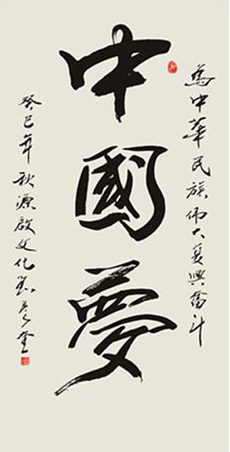 為中華民族偉大复興奮鬥
中國夢
癸巳年秋源啟文化